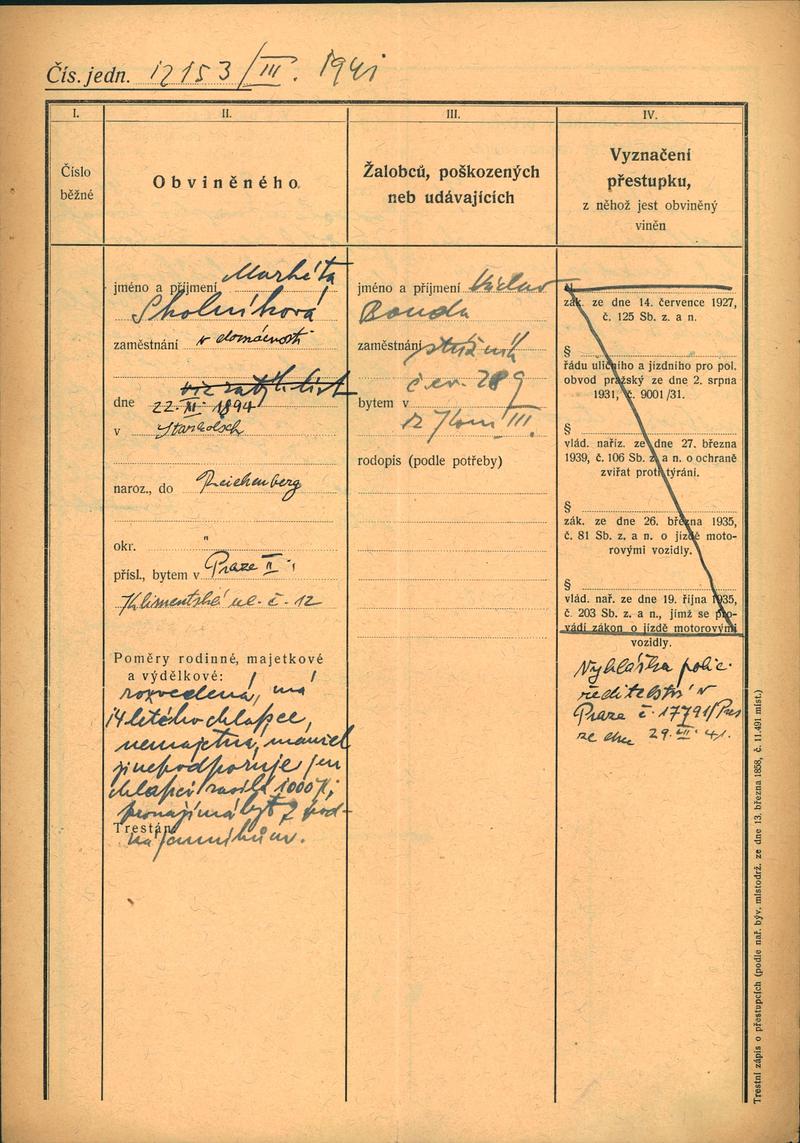 Čís. jedn. 12153/III. 1941
I.
II.
III.
IV.
Číslo
běžné
Obviněného
Žalobců, poškozených
neb udávajících
Vyznačení
přestupku,
z něhož jest obviněný
viněn
jméno a příjmení Markéta
Skolníková
zaměstnání v domácnosti
viz zatýk. list
dne 22. XI. 1894
v
naroz., do Reichenberg
okr. "
přísl., bytem v Praze II.,
Klimentská ul. č. 12
Poměry rodinné, majetkové
a výdělkové:
rozvedená, má
14letého chlapce,
nemajetná, manžel
ji nepodporuje, jen
chlapci 1000 K,
pronajímá byt 2 pod-
Trestán:
nájemníkům.
jméno a příjmení Václav
Bouda
zaměstnání strážník
č. ev. 289
bytem v
III.
rodopis (podle potřeby)
§
zák. ze dne 14. července 1927,
č. 125 Sb. z. a n.
§
řádu uličního a jízdního pro pol.
obvod pražský ze dne 2. srpna
1931, č. 9001/31.
§
vlád. naříz. ze dne 27. března
1939, č. 106 Sb. z. a n. o ochraně
zvířat proti týrání.
§
zák. ze dne 26. března 1935,
č. 81 Sb. z. a n. o jízdě moto-
rovými vozidly.
§
vlád. nař. ze dne 19. října 1935,
č. 203 Sb. z. a n., jímž se pro-
vádí zákon o jízdě motorovými
vozidly.
Vyhláška polic.
ředitelství v
Praze č. 17791/Pres
ze dne 29. VII. 41.
Trestní zápis o přestupcích (podle nař. býv. místodrž. ze dne 13. března 1858, č. 11.491 míst.)